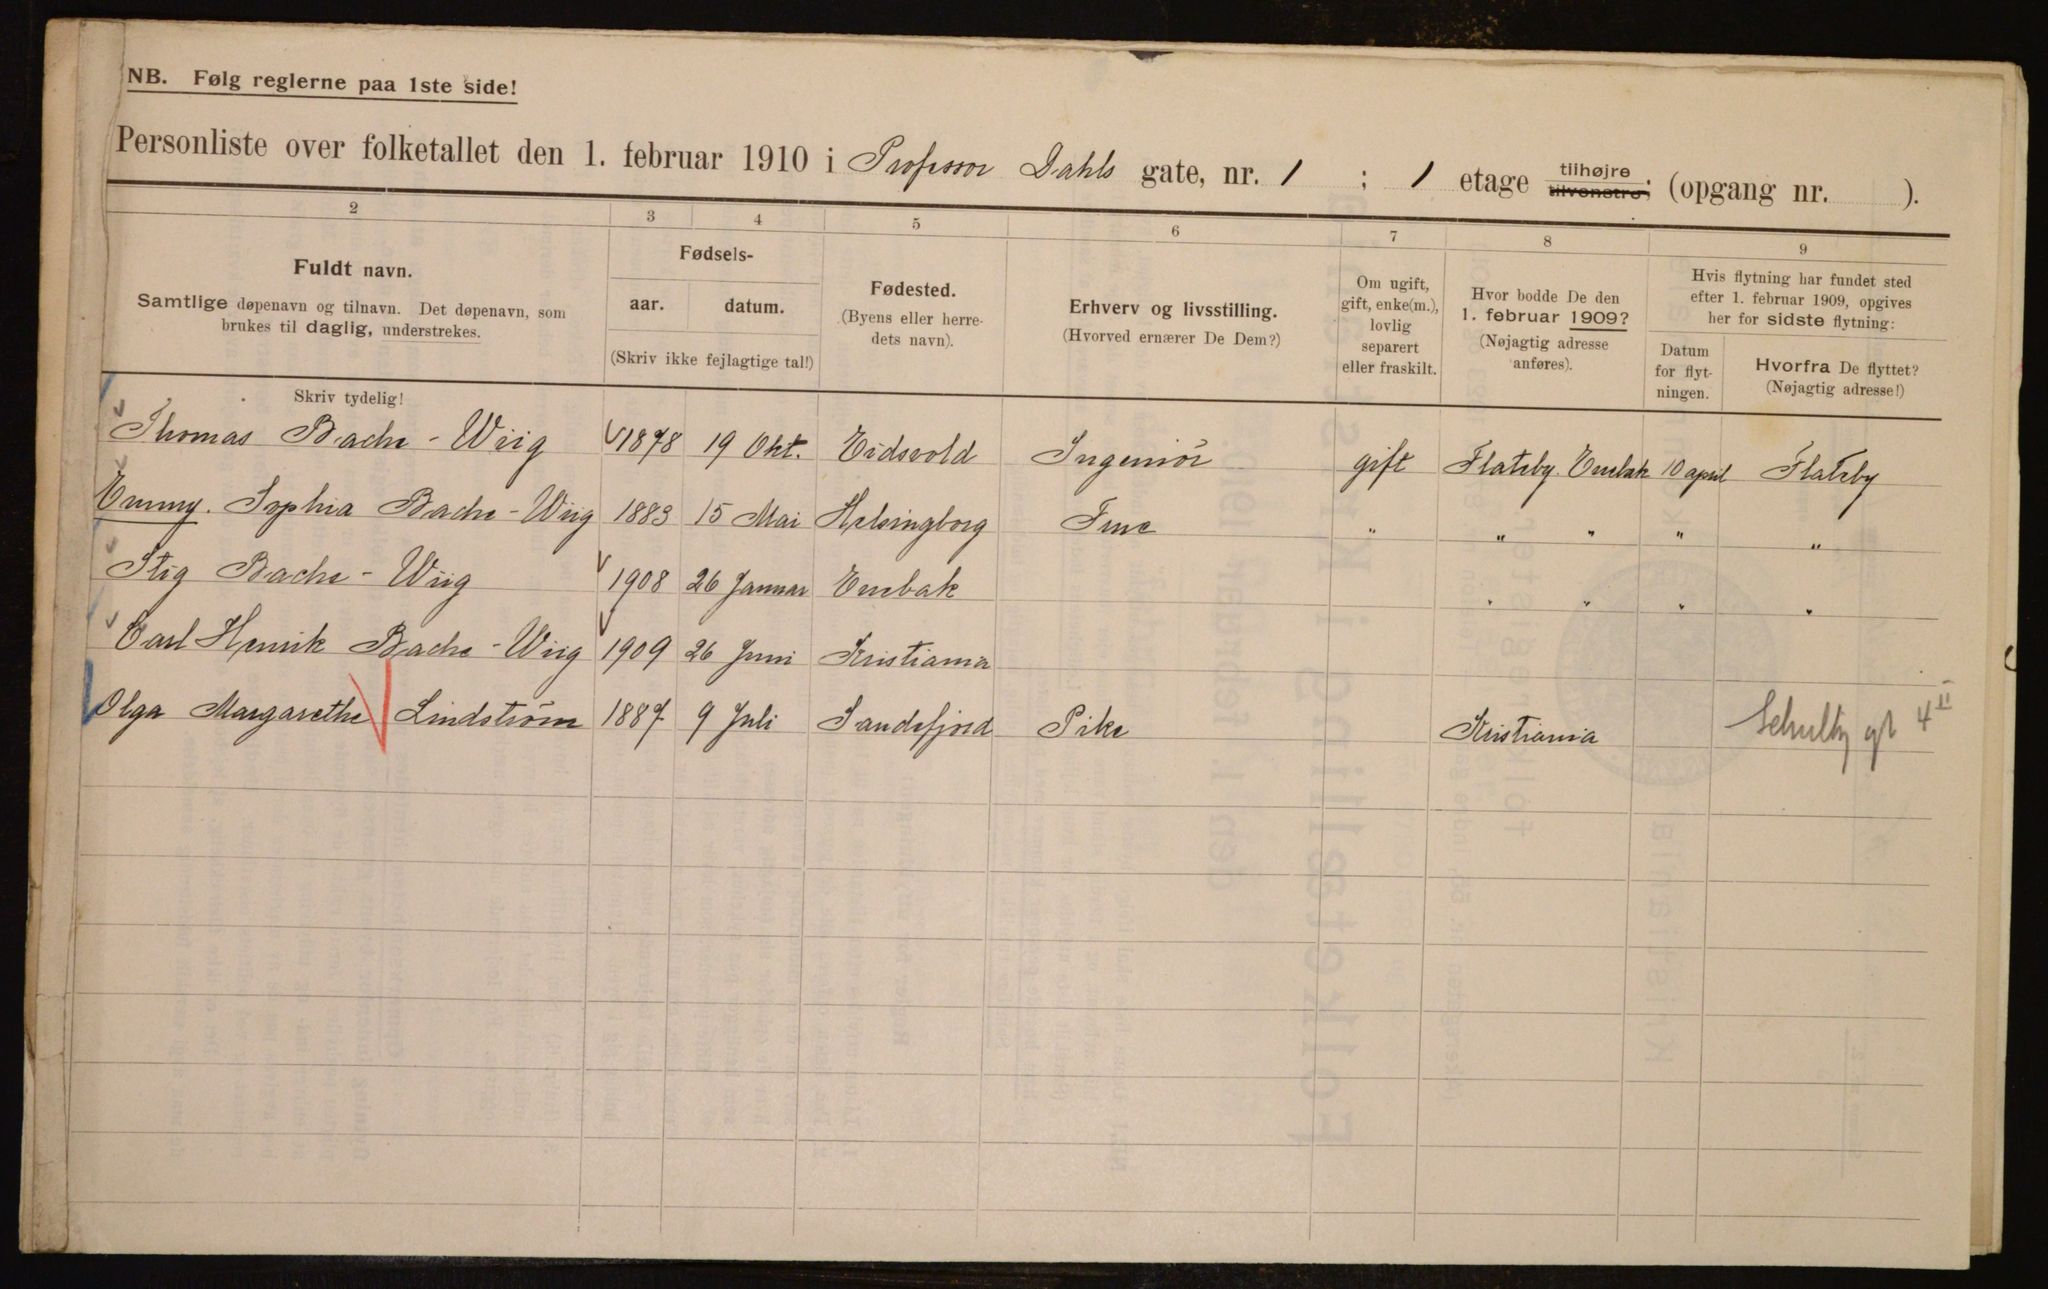 NB. Følg reglerne paa 1ste side!
Personliste over folketallet den 1. februar 1910 i Professor Dahls gate, nr. 1 ; 1 etage tilhøjre, tilvenstre, (opgang nr. ).
2 3 4 5 6 7 8 9
Fuldt navn.
Samtlige døpenavn og tilnavn. Det døpenavn, som
brukes til daglig, understrekes.
Fødsels-
aar. datum.
(Skriv ikke fejlagtige tal!)
Fødested.
(Byens eller herre-
dets navn).
Erhverv og livsstilling.
(Hvorved ernærer De Dem?)
Om ugift,
gift, enke(m.),
lovlig
separert
eller fraskilt.
Hvor bodde De den
1. februar 1909?
(Nøjagtig adresse
anføres).
Hvis flytning har fundet sted
efter 1. februar 1909, opgives
her for sidste flytning:
Datum
for flyt-
ningen.
Hvorfra De flyttet?
(Nøjagtig adresse!)
Skriv tydelig!
Thomas Bache-Wiig 1878 19 Okt. Eidsvold Ingeniör gift Flateby. Enebak 10 april Flateby
Emmy. Sophia Bache-Wiig 1883 15 Mai Helsingborg Frue " " " " "
Stig Bache-Wiig 1908 26 Januar Enebak " " " "
Carl Henrik Bache-Wiig 1909 26 Juni Kristiania
Olga Margarethe Lindström 1887 9 Juli Sandefjord Pike Kristiania Schultz gt 4 II